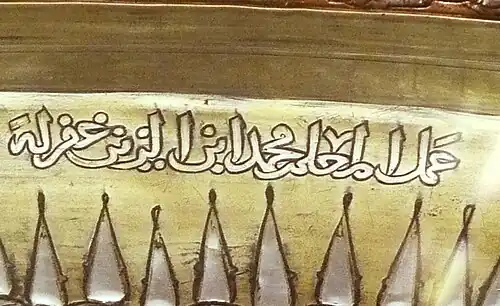 عمل المعلم محمد ابن الزين غفر له